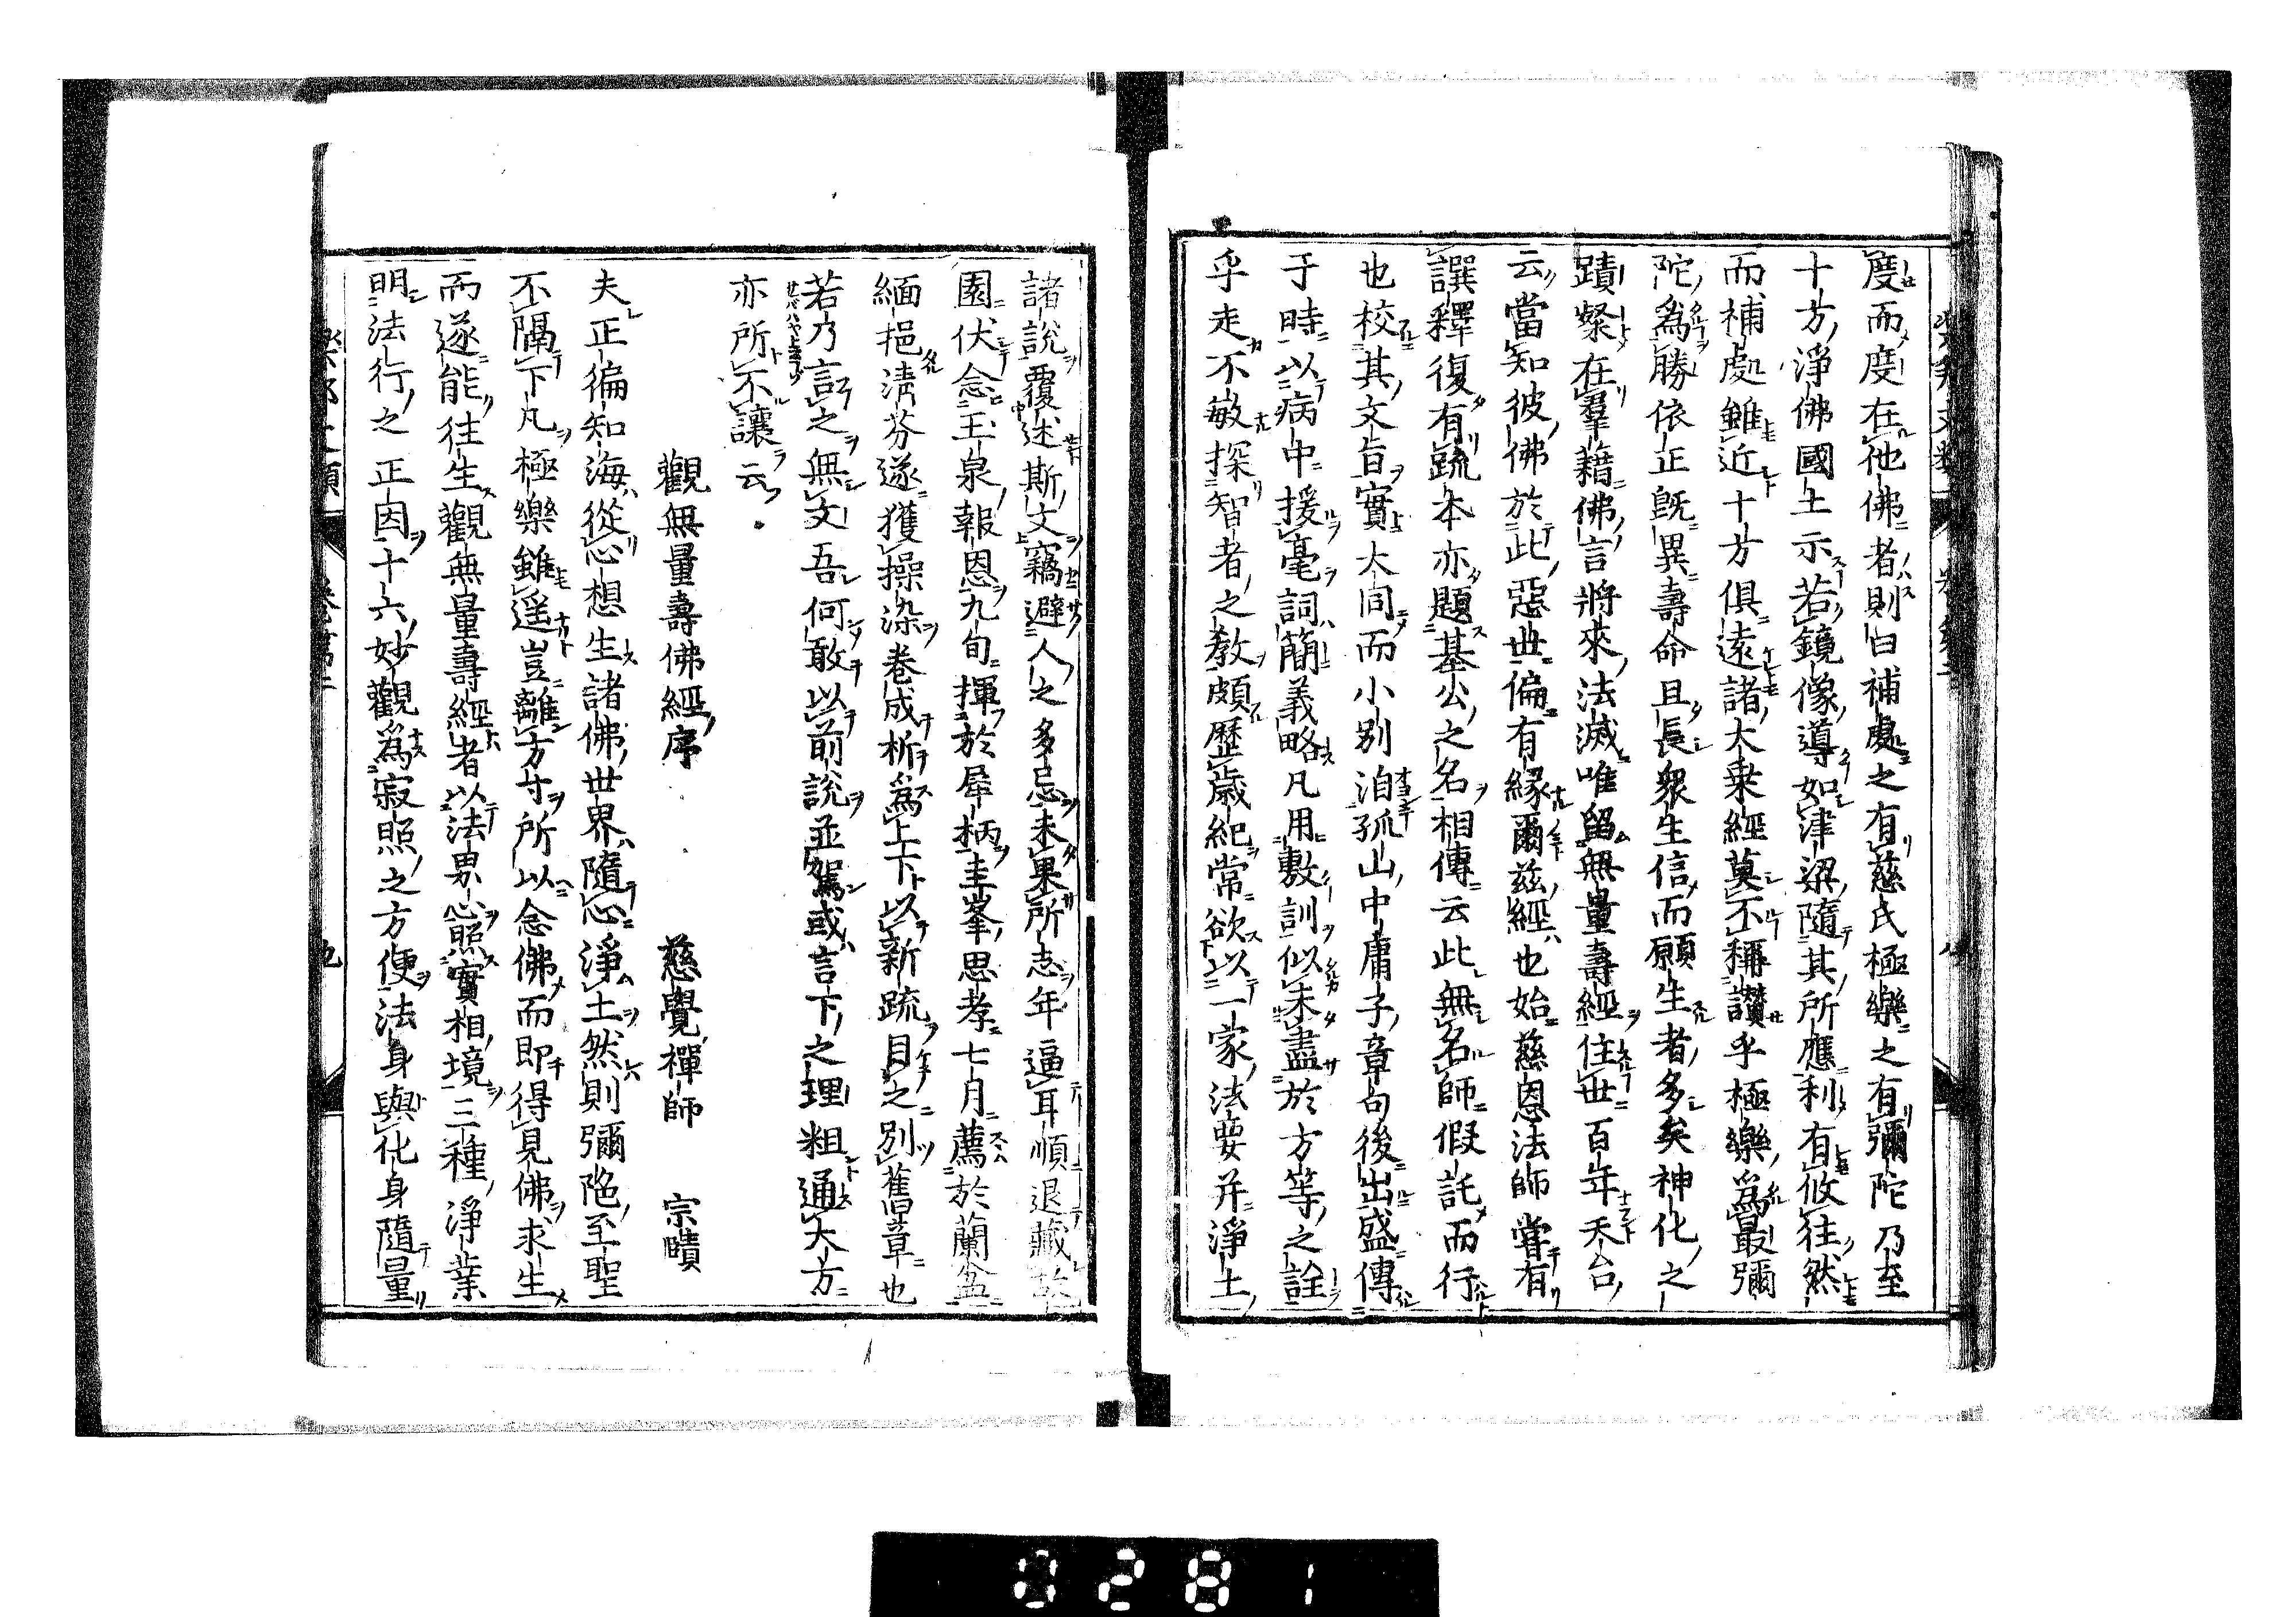 度而度在他佛者則白補處之有慈氏極樂之有彌陀乃至
十方淨佛國土示若鏡像導如津梁隨其所應利有攸往然
而補處雖近十方俱遠諸大乘經莫不稱讚乎極樂爲最彌
陀爲勝依正旣異壽命且長衆生信而願生者多矣神化之
蹟粲在羣籍佛言將來法滅唯留無量壽經住世百年天台
云當知彼佛於此惡世偏有緣爾茲經也始慈恩法師嘗有
譔釋復有䟽本亦題基公之名相傳云此無名師假託而行
也校其文旨實大同而小别洎孤山中庸子章句後出盛傳
于時以病中援毫詞簡義略凡用敷訓似未盡於方等之詮
乎走不敏探智者之教頗歷歲紀常欲以一家法要并淨土
諸說覆述斯文竊避人之多忌未果所志年逼耳順退藏於
園伏念玉泉報恩九旬揮於犀柄圭峯思孝七月薦於蘭盆
緬挹淸芬遂獲操染卷成析爲上下以新疏目之别舊章也
若乃言之無文吾何敢以前說並駕或言下之理粗通大方
亦所不讓云
觀無量壽佛經序 慈覺禪師 宗賾
夫正徧知海從心想生諸佛世界隨心淨土然則彌陁至聖
不隔下凡極樂雖遥豈離方寸所以念佛而即得見佛求生
而遂能往生觀無量壽經者以法界心照實相境三種淨業
明法行之正因十六妙觀爲寂照之方便法身與化身隨量
卷第二
九
0281